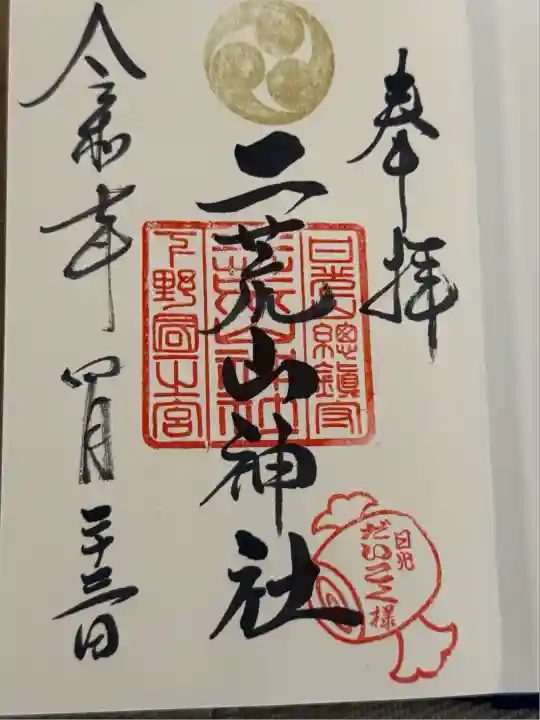 奉拝
二荒山神社
日光山總鎮守
二荒山神社
下野國一之宮
日光
だいこく様
令和年四月二十三日